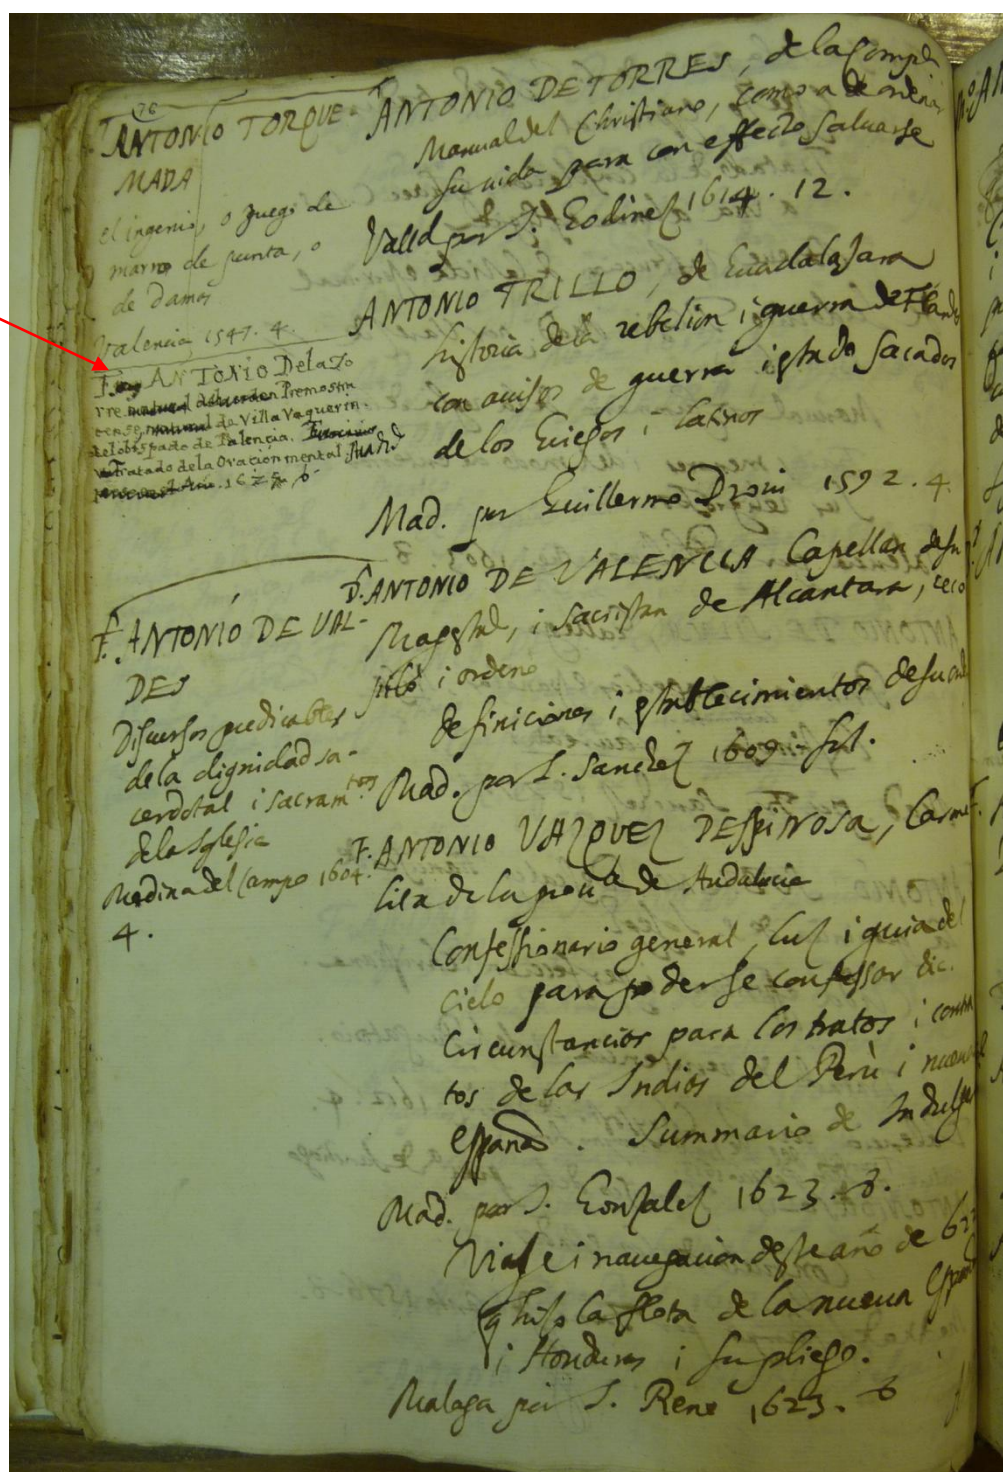 76
ANTONIO TORQUE-
MADA
el ingenio, o juego de
marro de punta, o
de Damas
Valencia 1547. 4.
F. ANTONIO Dela To
rre
de Villa Vaquerin.
del obispado de Palencia.
Tratado dela Oracion mental. Madrid
1625
F. ANTONIO DE VAL-
DES
Discursos predicables
dela dignidad sa-
cerdotal i sacram.tos
dela Iglesia
Medina del Campo 1604.
4.
ANTONIO DE TORRES, de la Compa
Manual del Christiano, como a de ordenar
su vida para con effecto salvarse
Valld. por J. Godinez 1614. 12.
ANTONIO TRILLO, de Guadalajara
historia dela rebelion i guerra de Fland
con avisos de guerra i estado sacados
de los Griegos i latinos
Mad. por Guillermo Droui 1592. 4.
F. ANTONIO DE VALENCIA Capellan de su
Magestad, i sacristan de Alcantara, reco
pilo i ordeno
definiciones i establecimientos de su
Mad. por L. Sanchez 1609. fol.
F. ANTONIO VAZQUEZ DESPINOSA, Carme
lita de la prou.a de Andalucia
Confessionario general, luz i guia del
cielo para poderse confessar
Circunstancias para los tratos i contra
tos de las Indias del Perù i nueva
españa. Summario de Indulg
Mad. por J. Gonzalez 1623. 8.
Viaje i navegacion deste año de 622
q hizo la flota de la nueva Españ
i Honduras i su pliego.
Malaga por J. Rene 1623. 8